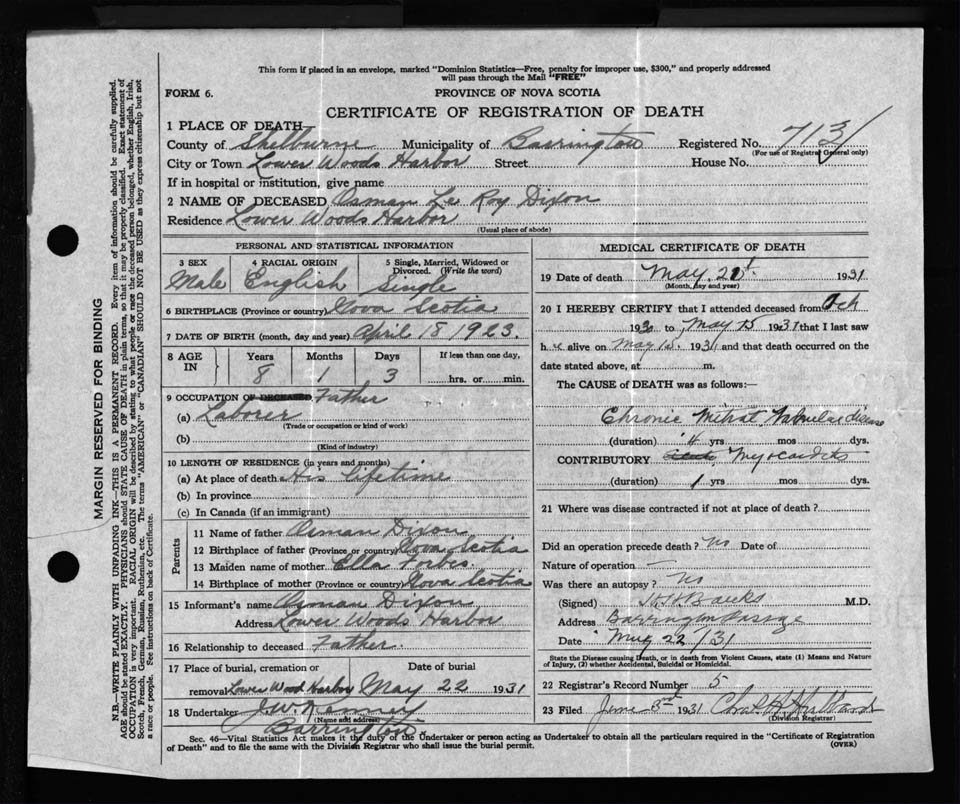 This form if placed in an envelope, marked "Dominion Statistics—Free, penalty for improper use, $300," and properly addressed
will pass through the Mail "FREE"
FORM 6.
PROVINCE OF NOVA SCOTIA
CERTIFICATE OF REGISTRATION OF DEATH
1 PLACE OF DEATH
County of Shelburne Municipality of Barrington Registered No. 713
(For use of Registrar General only)
City or Town Lower Woods Harbor Street House No.
If in hospital or institution, give name
2 NAME OF DECEASED Osman Le Roy Dixon
Residence Lower Woods Harbor
(Usual place of abode)
PERSONAL AND STATISTICAL INFORMATION
3 SEX 4 RACIAL ORIGIN 5 Single, Married, Widowed or
Divorced. (Write the word)
Male English Single
6 BIRTHPLACE (Province or country) Nova Scotia
7 DATE OF BIRTH (month, day and year) April 18 1923.
8 AGE IN Years Months Days If less than one day,
8 1 3 hrs. or min.
9 OCCUPATION OF DECEASED Father
(a) Laborer
(Trade or occupation or kind of work)
(b)
(Kind of industry)
10 LENGTH OF RESIDENCE (in years and months)
(a) At place of death His lifetime
(b) In province
(c) In Canada (if an immigrant)
Parents
11 Name of father Osman Dixon
12 Birthplace of father (Province or country) Nova Scotia
13 Maiden name of mother Ella Forbes.
14 Birthplace of mother (Province or country) Nova Scotia
15 Informant's name Osman Dixon
Address Lower Woods Harbor
16 Relationship to deceased Father.
17 Place of burial, cremation or Date of burial
removal Lower Wood Harbor May 22 1931
18 Undertaker J.W. Kenney
(Name and address)
Barrington
MEDICAL CERTIFICATE OF DEATH
19 Date of death May 21st 1931
(Month, day and year)
20 I HEREBY CERTIFY that I attended deceased from Oct
1930 to May 15 1931 that I last saw
h alive on May 15, 1931 and that death occurred on the
date stated above, at m.
The CAUSE of DEATH was as follows:
Chronic Mitral Valvular disease
(duration) 4 yrs mos dys.
CONTRIBUTORY Myocarditis
(duration) 1 yrs mos dys.
21 Where was disease contracted if not at place of death?
Did an operation precede death? No Date of
Nature of operation —
Was there an autopsy? No
(Signed) Banks M.D.
Address Barrington Passage
Date May 22/31
State the Disease causing Death, or in death from Violent Causes, state (1) Means and Nature
of Injury, (2) whether Accidental, Suicidal or Homicidal.
22 Registrar's Record Number 5
23 Filed June 3rd 1931 Chas.
(Division Registrar)
Sec. 46—Vital Statistics Act makes it the duty of the Undertaker or person acting as Undertaker to obtain all the particulars required in the "Certificate of Registration
of Death" and to file the same with the Division Registrar who shall issue the burial permit.
(OVER)
MARGIN RESERVED FOR BINDING
N.B.—WRITE PLAINLY WITH UNFADING INK—THIS IS A PERMANENT RECORD. Every item of information should be carefully supplied.
AGE should be stated EXACTLY. PHYSICIANS should STATE CAUSE OF DEATH in plain terms, so that it may be properly classified. Exact statement of
OCCUPATION is very important. RACIAL ORIGIN will be described by stating to what people or race the deceased person belonged, whether English, Irish,
Scotch, French, German, Russian, Ruthenian, etc. The terms "AMERICAN" or "CANADIAN" SHOULD NOT BE USED as they express citizenship but not
a race or people. See instructions on back of Certificate.